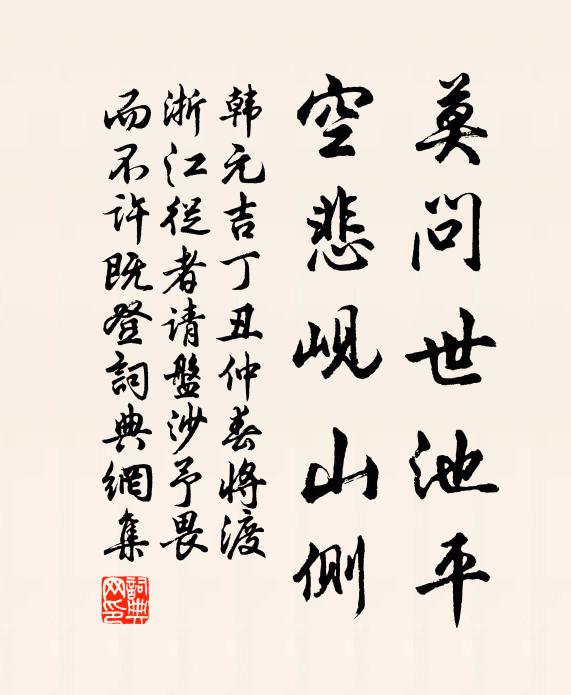 莫问世池平
空悲岘山侧
韩元吉丁丑仲春将渡
浙江从者请盘沙予畏
而不许既登詞典網集
詞典网印